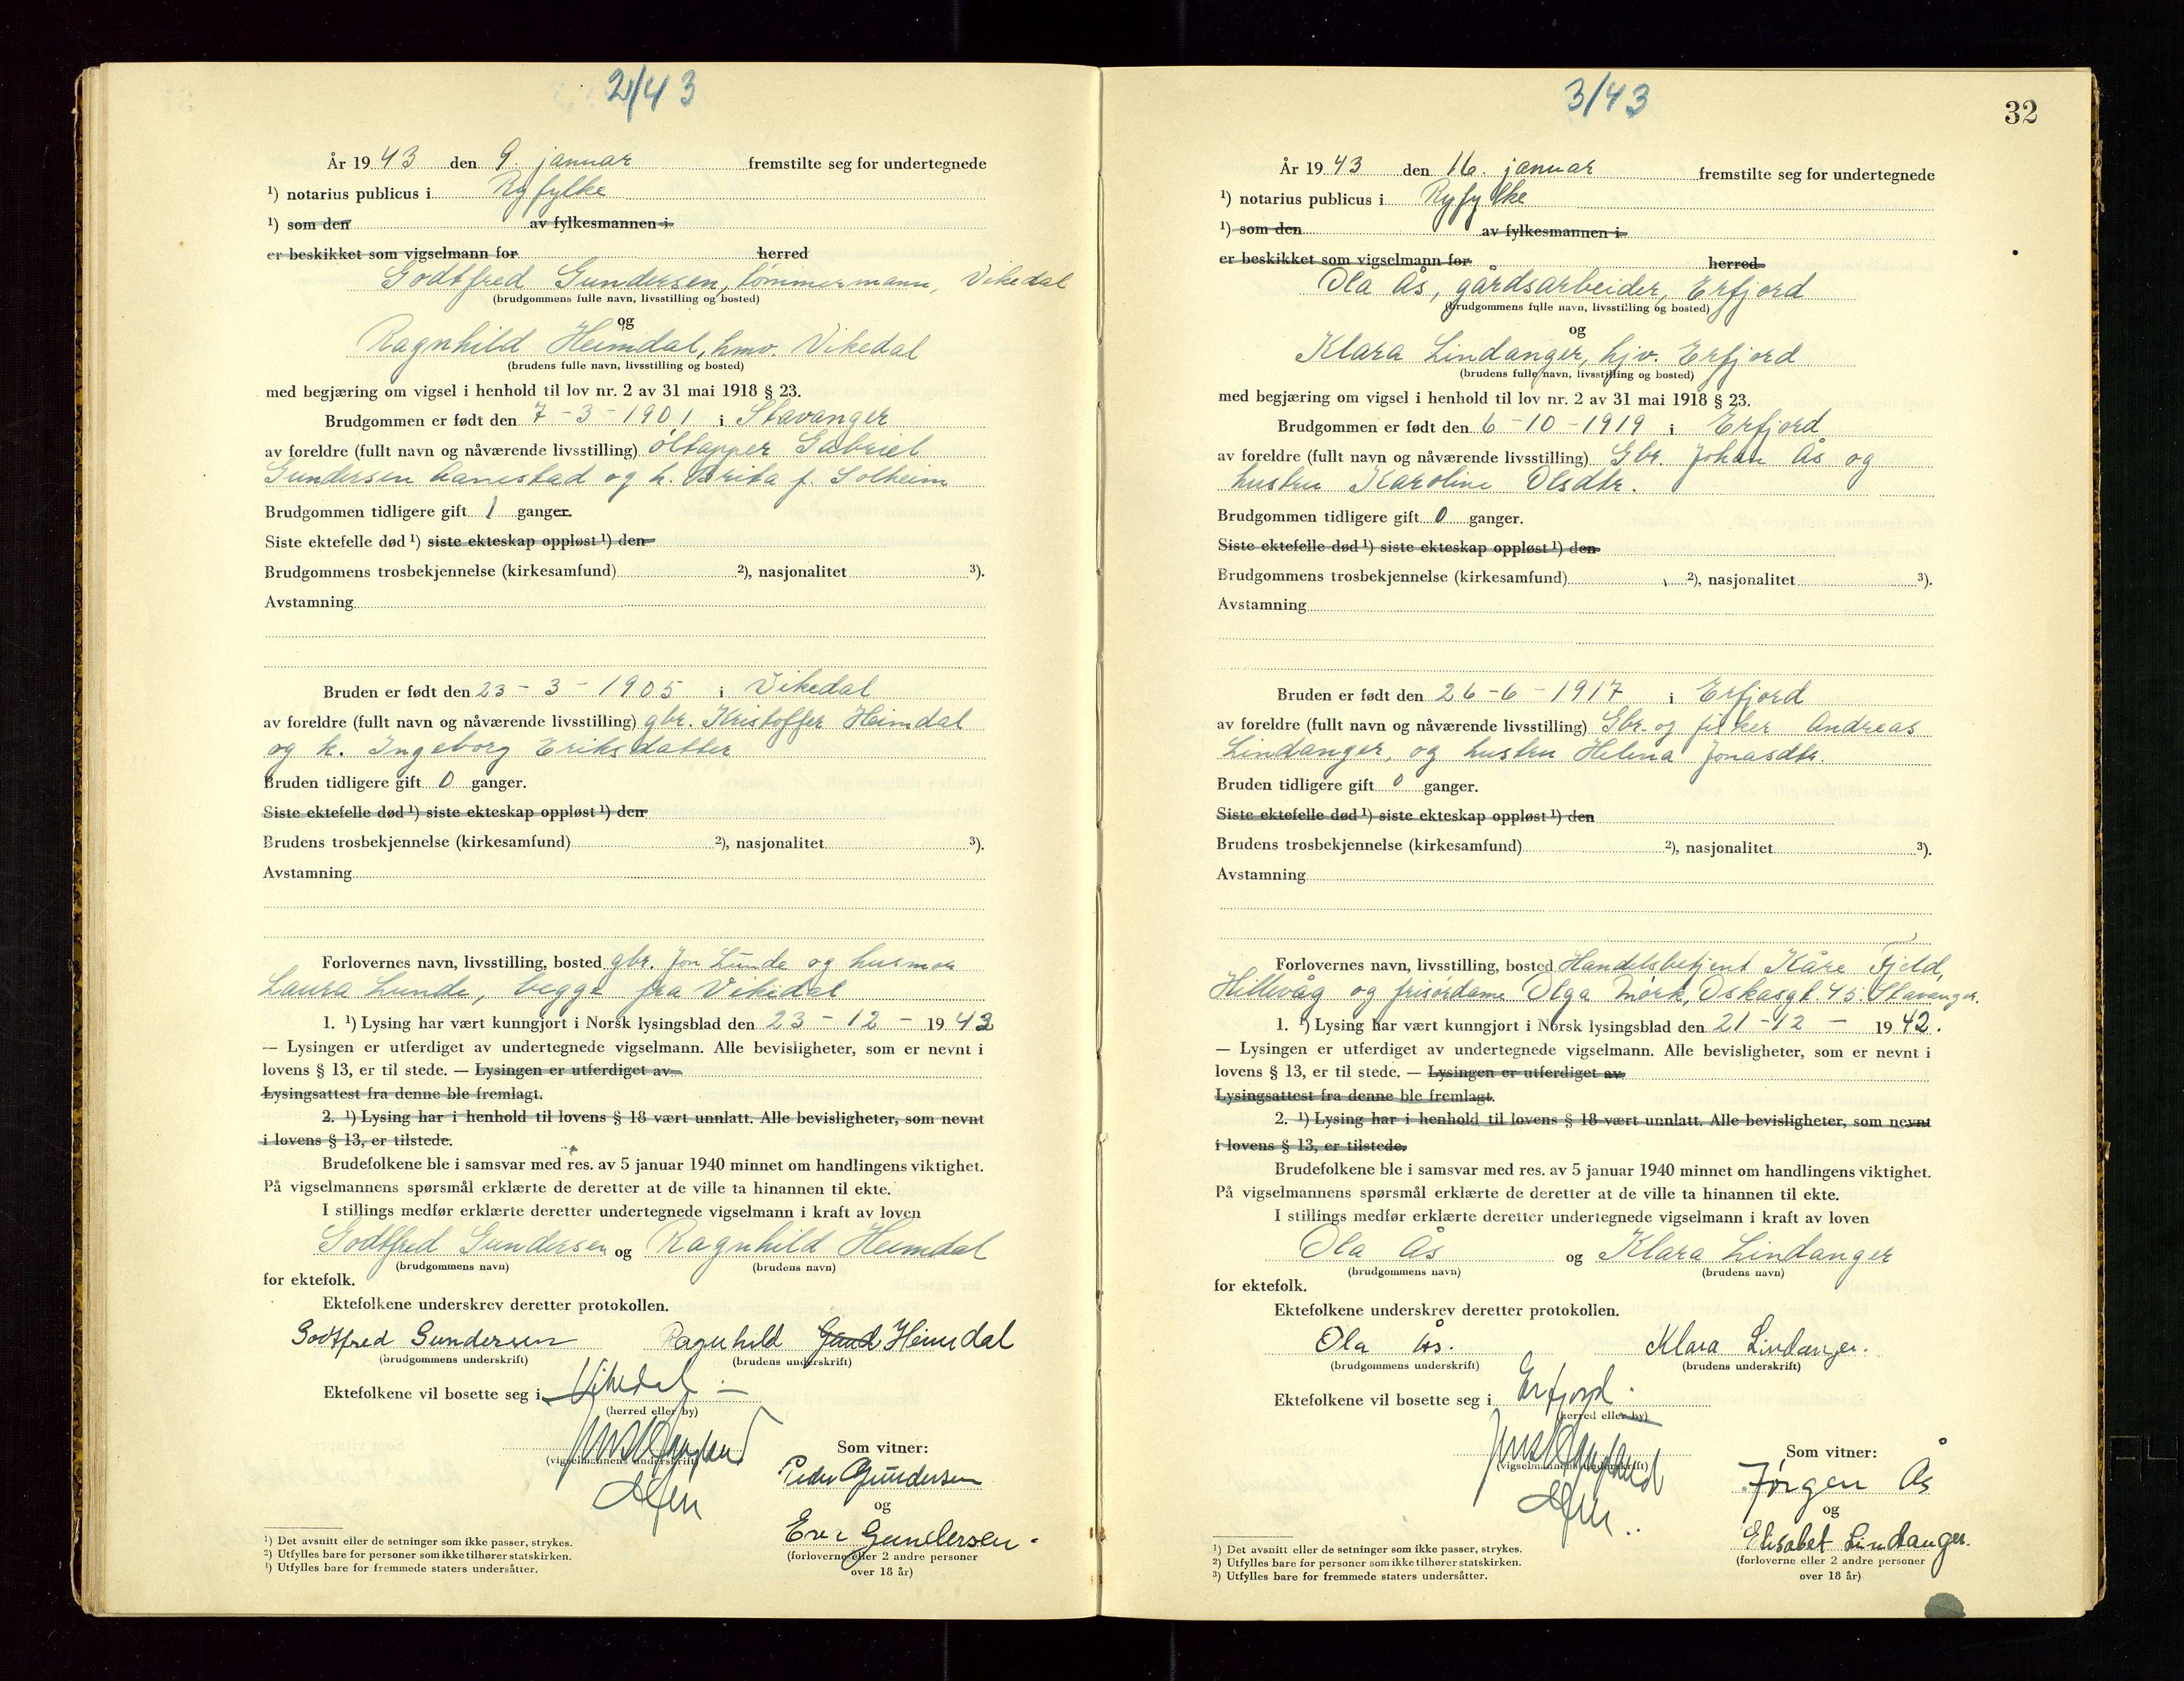 2/43
År 1943 den 9. januar fremstilte seg for undertegnede
¹) notarius publicus i Ryfylke
¹) som den av fylkesmannen i
er beskikket som vigselmann for herred
Godtfred Gundersen, tømmermann, Vikedal
(brudgommens fulle navn, livsstilling og bosted)
og
Ragnhild Heimdal, hmv. Vikedal
(brudens fulle navn, livsstilling og bosted)
med begjæring om vigsel i henhold til lov nr. 2 av 31 mai 1918 § 23.
Brudgommen er født den 7-3-1901 i Stavanger
av foreldre (fullt navn og nåværende livsstilling) øltapper Gabriel
Gundersen Aanestad og h. Brita f. Solheim
Brudgommen tidligere gift 1 ganger.
Siste ektefelle død ¹) siste ekteskap oppløst ¹) den
Brudgommens trosbekjennelse (kirkesamfund) ²), nasjonalitet ³).
Avstamning
Bruden er født den 23-3-1905 i Vikedal
av foreldre (fullt navn og nåværende livsstilling) gbr. Kristoffer Heimdal
og h. Ingeborg Eriksdatter
Bruden tidligere gift 0 ganger.
Siste ektefelle død ¹) siste ekteskap oppløst ¹) den
Brudens trosbekjennelse (kirkesamfund) ²), nasjonalitet ³).
Avstamning
Forlovernes navn, livsstilling, bosted gbr. Jon Lunde og husmor
Laura Lunde, begge fra Vikedal
1. ¹) Lysing har vært kunngjort i Norsk lysingsblad den 23-12-1942
— Lysingen er utferdiget av undertegnede vigselmann. Alle bevisligheter, som er nevnt i
lovens § 13, er til stede. — Lysingen er utferdiget av
Lysingsattest fra denne ble fremlagt.
2. ¹) Lysing har i henhold til lovens § 18 vært unnlatt. Alle bevisligheter, som nevnt
i lovens § 13, er tilstede.
Brudefolkene ble i samsvar med res. av 5 januar 1940 minnet om handlingens viktighet.
På vigselmannens spørsmål erklærte de deretter at de ville ta hinannen til ekte.
I stillings medfør erklærte deretter undertegnede vigselmann i kraft av loven
Godtfred Gundersen og Ragnhild Heimdal
(brudgommens navn) (brudens navn)
for ektefolk.
Ektefolkene underskrev deretter protokollen.
Godtfred Gundersen Ragnhild Gund Heimdal
(brudgommens underskrift) (brudens underskrift)
Ektefolkene vil bosette seg i Vikedal
(herred eller by)
Som vitner:
(vigselmannens underskrift)
Peder Gundersen
og
Eva Gundersen.
(forloverne eller 2 andre personer
over 18 år)
¹) Det avsnitt eller de setninger som ikke passer, strykes.
²) Utfylles bare for personer som ikke tilhører statskirken.
³) Utfylles bare for fremmede staters undersåtter.
3/43
32
År 1943 den 16. januar fremstilte seg for undertegnede
¹) notarius publicus i Ryfylke
¹) som den av fylkesmannen i
er beskikket som vigselmann for herred
Ola Ås, gårdsarbeider, Erfjord
(brudgommens fulle navn, livsstilling og bosted)
og
Klara Lindanger, hjv. Erfjord
(brudens fulle navn, livsstilling og bosted)
med begjæring om vigsel i henhold til lov nr. 2 av 31 mai 1918 § 23.
Brudgommen er født den 6-10-1919 i Erfjord
av foreldre (fullt navn og nåværende livsstilling) Gbr. Johan Ås og
hustru Karoline Olsdtr.
Brudgommen tidligere gift 0 ganger.
Siste ektefelle død ¹) siste ekteskap oppløst ¹) den
Brudgommens trosbekjennelse (kirkesamfund) ²), nasjonalitet ³).
Avstamning
Bruden er født den 26-6-1917 i Erfjord
av foreldre (fullt navn og nåværende livsstilling) Gbr. og fisker Andreas
Lindanger, og hustru Helena Jonasdtr.
Bruden tidligere gift 0 ganger.
Siste ektefelle død ¹) siste ekteskap oppløst ¹) den
Brudens trosbekjennelse (kirkesamfund) ²), nasjonalitet ³).
Avstamning
Forlovernes navn, livsstilling, bosted Handelsbetjent Kåre Fjeld,
Hillevåg og frisørdame Olga Mørk, Oskasgt. 45. Stavanger.
1. ¹) Lysing har vært kunngjort i Norsk lysingsblad den 21-12-1942.
— Lysingen er utferdiget av undertegnede vigselmann. Alle bevisligheter, som er nevnt i
lovens § 13, er til stede. — Lysingen er utferdiget av
Lysingsattest fra denne ble fremlagt.
2. ¹) Lysing har i henhold til lovens § 18 vært unnlatt. Alle bevisligheter, som nevnt
i lovens § 13, er tilstede.
Brudefolkene ble i samsvar med res. av 5 januar 1940 minnet om handlingens viktighet.
På vigselmannens spørsmål erklærte de deretter at de ville ta hinannen til ekte.
I stillings medfør erklærte deretter undertegnede vigselmann i kraft av loven
Ola Ås og Klara Lindanger
(brudgommens navn) (brudens navn)
for ektefolk.
Ektefolkene underskrev deretter protokollen.
Ola Ås. Klara Lindanger.
(brudgommens underskrift) (brudens underskrift)
Ektefolkene vil bosette seg i Erfjord.
(herred eller by)
Som vitner:
(vigselmannens underskrift)
Jørgen Ås
og
Elisabet Lindanger.
(forloverne eller 2 andre personer
over 18 år)
¹) Det avsnitt eller de setninger som ikke passer, strykes.
²) Utfylles bare for personer som ikke tilhører statskirken.
³) Utfylles bare for fremmede staters undersåtter.